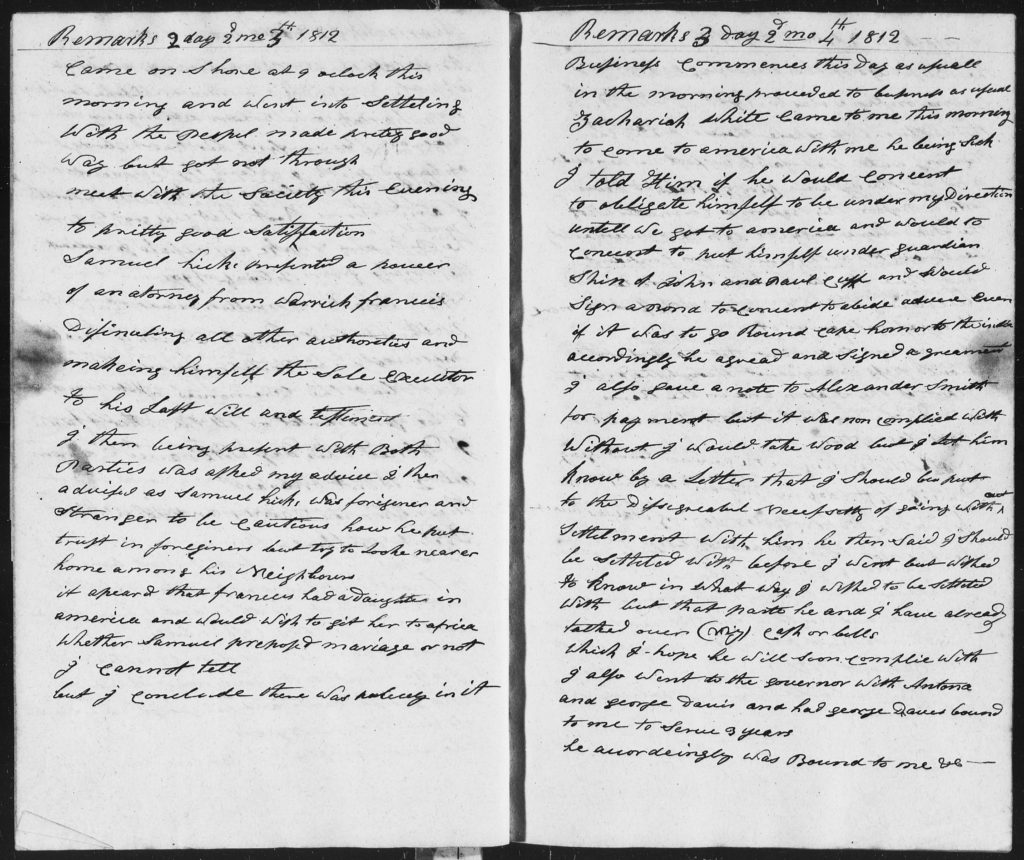 Remarks 2 day 2d mo 3th 1812
Came on Shore at 9 oclock this
morning and Went into Setteling
With the People made pritey good
Way but got not through
meet With the Society this Evening
to pritty good Satisfaction
Samuel hicks presented a power
of an atorney from Warrick francis
Disinuling all other authorities and
makeing himself the Sole Executor
to his Last Will and testiment
I then being present With Both
Parties was asked my advice I then
advised as Samuel hicks was forigener and
Stranger to be Cautious how he put
trust in foreginers but try to Looke nearer
home among his Neighbours
it apeard that francies had a Daughter in
america and Would Wish to git her to africa
Whether Samuel preposd mariage or not
I Cannot tell
but I Conclude there was policy in it
Remarks 3 day 2d mo 4th 1812
Business Commences this Day as usuall
in the morning proceeded to business as usual
Zachariah White Came to me this morning
to Come to america With me he being Sick
I told Him if he Would Concent
to obligate himself to be under my Direction
untell We got to america and Would to
Concent to put himself under guardian
Ship of John and Paul Cuff and Would
Sign a to Concent to abide advice Even
if it was to go Round Cape horn or to the
accordingly he agread and Signed agreament
I also gave a note to Alexander Smith
for payment but it was non Complied With
Without I Would take Wood but I Let him
Know by a Letter that I Should be put
to the Disagreabel Necessity of going With out
Settelment With him he then Said I Should
be Setteled With before I Went but Wished
to Know in What Way I Wished to be Setteled
With but that parte he and I have already
talked over (viz) Cash or bills
Which I hope he Will Soon Complie With
I also Went to the governor With Antona
and george Davis and had george Daves bound
to me to Serve 3 years
he accordeingly was Bound to me &c